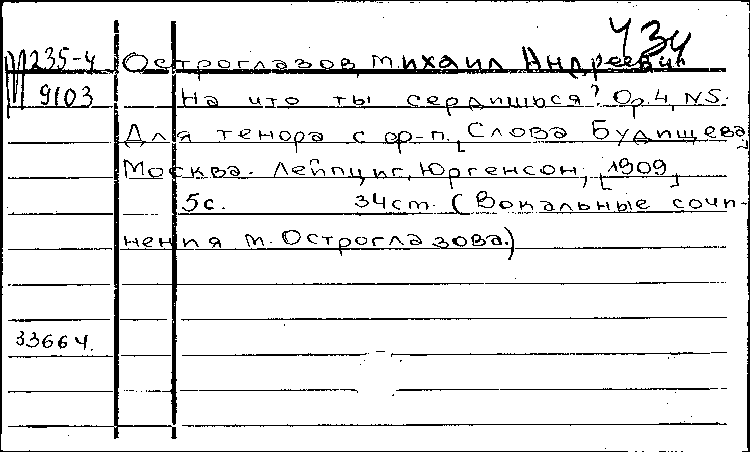 434
М235-4 Остроглазов, Михаил Андреевич
9103 На что ты сердишься? Op. 4, N5.
Для тенора с фр-п. [Слова Будищева]
Москва - Лейпциг, Юргенсон, [1909]
5с. 34cm. (Вокальные сочи-
нения М. Остроглазова.)
33664.